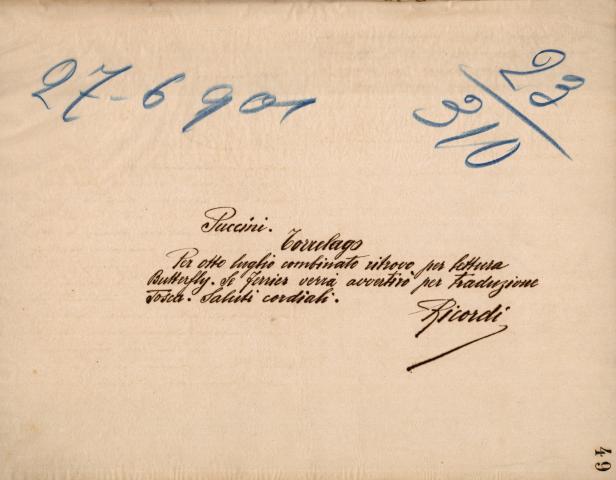 27-6 901
23/310
Puccini.
Torrelago
Per otto luglio combinato ritrovo per lettura
Butterfly. Se Ferrier verrà avvertirò per traduzione
Tosca. Saluti cordiali.
Ricordi
64